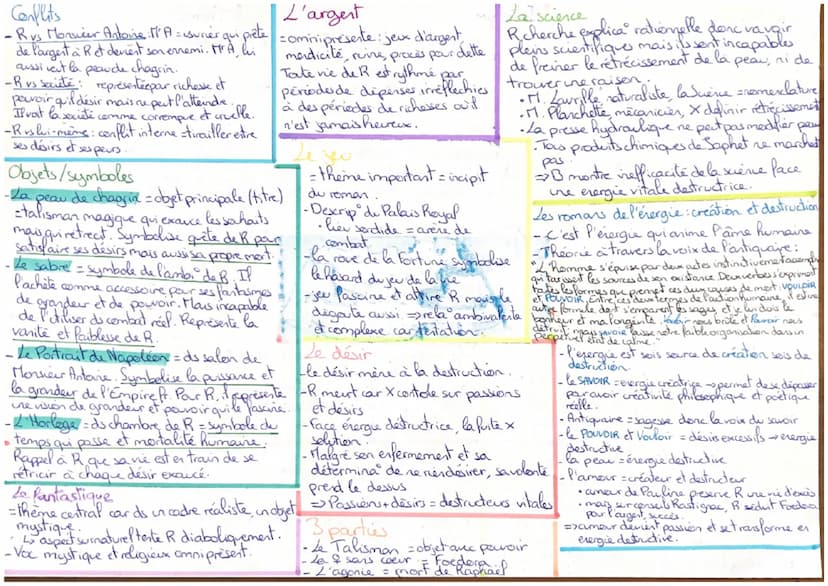 Conflits
- R vs Monsieur Antoine. Mr A = usurier qui prête
de l'argent à R et devient son ennemi. Mr A, lui
aussi veut la peau de chagrin.
- R vs société : représentée par richesse et
pouvoir qu'il désir mais ne peut l'atteindre.
Il voit la société comme corrompue et cruelle.
- R vs lui-même : conflit interne = tirailler entre
ses désirs et ses peurs.
Objets/symboles
- La peau de chagrin = objet principale (titre)
= talisman magique qui exauce les souhaits
mais qui retrecit. Symbolise quête de R pour
satisfaire ses désirs mais aussi sa propre mort.
- Le sabre = symbole de l'ambi° de R. Il
l'achète comme accessoire pour ses fantasmes
de grandeur et de pouvoir. Mais incapable
de l'utiliser ds combat réel. Représente la
vanité et faiblesse de R.
- Le Portrait de Napoléon = ds salon de
Monsieur Antoine. Symbolise la puissance et
la grandeur de l'Empire f. Pour R, il représente
une vision de grandeur et pouvoir qui le fascine.
- L'Horloge = ds chambre de R = symbole du
temps qui passe et mortalité humaine.
Rappel à R que sa vie est en train de se
rétricir à chaque désir exaucé.
Le fantastique
= thème central car ds un cadre réaliste, un objet
mystique.
↳ aspect surnaturel tente R diaboliquement.
- Voc mystique et religieux omniprésent.
L'argent
= omniprésente : jeux d'argent,
mendicité, ruine, procès pour dette
Toute vie de R est rythmé par
périodes de dépenses irréfléchies
à des périodes de richesses où il
n'est jamais heureux.
Le jeu
= thème important = incipit
du roman.
- Descrip° du Palais Royal
• lieu sordide = arène de
combat
- la roue de la fortune symbolise
le hasard du jeu de la vie
- jeu fascine et attire R mais le
dégoute aussi => rela° ambivalente
et complexe car tentation.
Le désir
- le désir mène à la destruction.
- R meurt car X contrôle sur passions
et désirs
- Face énergie destructrice, la fuite X
solution.
- Malgré son enfermement et sa
détermina° de ne rien désirer, sa volonté
prend le dessus
=> Passions + désirs = destructeurs vitales
3 parties
- Le Talisman = objet avec pouvoir
- La ♀ sans coeur = Foedora
- L'agonie = mort de Raphaël
La science
R cherche explica° rationnelle donc va voir
pleins scientifiques mais ils sont incapables
de freiner le rétrécissement de la peau, ni de
trouver une raison.
• M. Lavrille, naturaliste, la science = nomenclature
• M. Planchette, mécanicien, X définir rétrécissement
• La presse hydraulique ne peut pas modifier peau
- Tous produits chimiques de Japhet ne marchent
pas
=> B montre inefficacité de la science face
une énergie vitale destructrice.
Les romans de l'énergie : création et destruction
- C'est l'énergie qui anime l'âme humaine
- Théorie à travers la voix de l'antiquaire :
"L'Homme s'épuise par deux actes instinctivement accomplis
qui tarissent les sources de son existence. Deux verbes expriment
toutes les formes que prennent ces deux causes de mort : VOULOIR
et POUVOIR. Entre ces deux termes de l'action humaine, il est une
autre formule dont s'emparent les sages et je lui dois le
bonheur et ma longévité. Vouloir nous brûle et Pouvoir nous
détruit, mais savoir laisse notre faible organisation dans un
perpétuel état de calme."
- l'énergie est sois source de création sois de
destruction.
- le SAVOIR = énergie créatrice → permet de se dépasser
pour avoir créativité philosophique et poétique
réelle.
- Antiquaire = sagesse donc la voix du savoir
- le POUVOIR et Vouloir = désirs excessifs → énergie
destructive
- la peau = énergie destructive
- l'amour = créateur et destructeur
• amour de Pauline préserve R une vie d'excès
• mais sur conseils Rastignac, R séduit Foedora
pour l'argent, succès.
=> amour devient passion et se transforme en
énergie destructive.